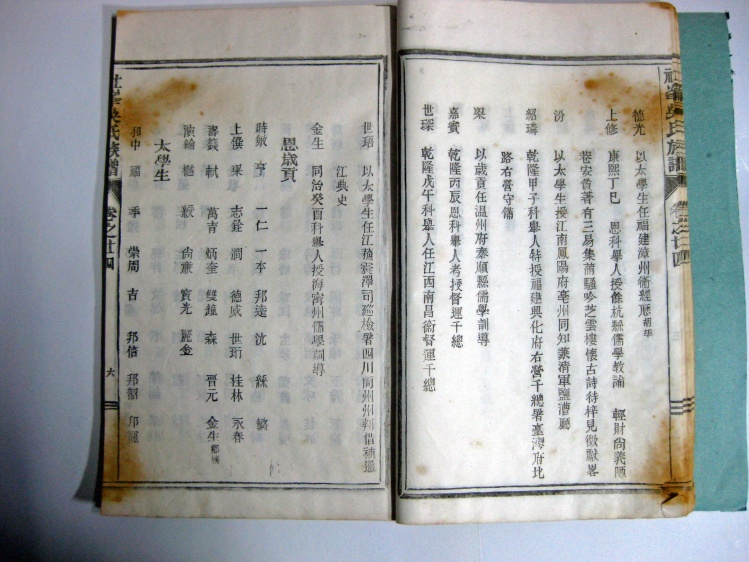 吳氏族譜
卷之廿四
德光 以太學生任福建漳州衞經歷
上修 康熙丁巳 恩科舉人授餘杭縣儒學教諭 輕財尚義陋
巷安貧著有三易集蕭騷吟芝雲樓懷古詩待梓見徵獻畧
汾 以太學生授江南鳳陽府亳州同知兼清軍鹽漕廳
紹璘 乾隆甲子科舉人特授福建興化府右營千總署臺灣府北
路右營守備
渠 以歲貢任溫州府泰順縣儒學訓導
嘉賓 乾隆丙辰恩科舉人考授督運千總
世琛 乾隆戊午科舉人任江西南昌衞督運千總
世珸 以太學生任江蘇 澤司巡檢署四川簡州州判借補
江典史
金生 同治癸酉科舉人授海甯州儒學訓導
恩歲貢
時敏 亨 一仁 一本 邦達 沈
上儇 渠 志銓 潤 德威 世珩 桂林 永春
軾 萬青 炳奎 雙鐘 森 晉元 金生
樾 尚 寶光 麗金
太學生
和中 季 崇周 吉 邦信 邦韶
吳氏族譜
卷之廿四
六